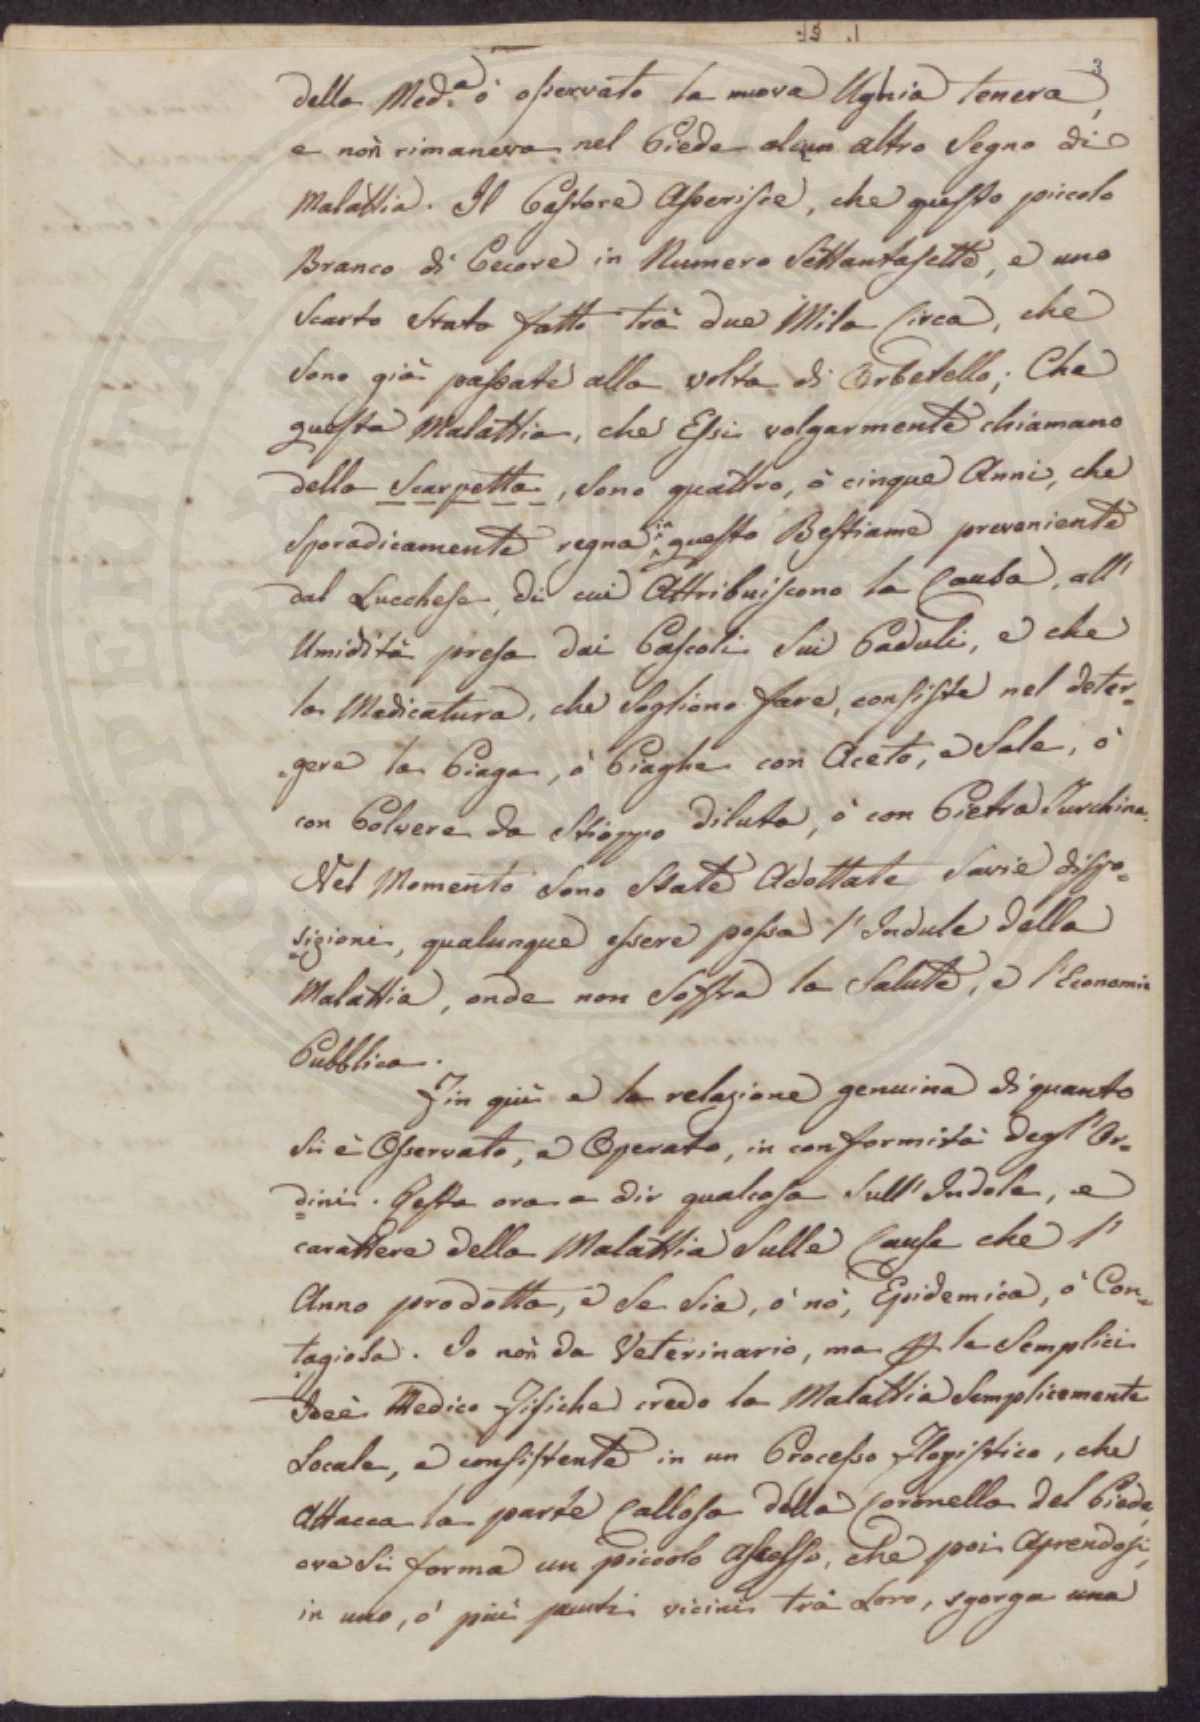 3
della Med.a ò osservato la nuova Ughia tenera,
e non rimaneva nel Piede alcun altro Segno di
Malattia. Il Pastore Asserisce, che questo piccolo
Branco di Pecore in Numero Settantasette, e uno
Scarto Stato fatto trà due Mila Circa, che
Sono già passate alla volta di Orbetello; Che
questa Malattia, che Essi volgarmente chiamano
della Scarpetta, Sono quattro, ò cinque Anni, che
Sporadicamente regna in questo Bestiame proveniente
dal Lucchese, di cui Attribuiscono la Causa, all'
Umidità presa dai Pascoli Sui Paduli, e che
la Medicatura, che Sogliono fare, consiste nel deter-
-gere la Piaga, ò Piaghe con Aceto, e Sale, ò
con Polvere da Stioppo diluta, ò con Pietra Turchina.
Nel Momento Sono State Adottate Savie dispo-
sizioni, qualunque essere possa l'Indule della
Malattia, onde non Soffra la Salute, e l'Economia
Pubblica.
Fin quì e la relazione genuina di quanto
Si è Osservato, e Operato, in conformità degl'Or-
dini. Resta ora a dir qualcosa Sull'Indole, e
carattere della Malattia Sulle Cause che l'
Anno prodotta, e Se Sia, ò nò, Epidemica, ò Con-
tagiosa. Io non da Veterinario, ma p le Semplici
Idee Medico Fisiche credo la Malattia Semplicemente
Locale, e consistente in un Processo Flogistico, che
Attacca la parte Callosa della Coronella del Piede,
ove Si forma un piccolo Ascesso, che poi Aprendosi,
in uno, ò più punti vicini trà Loro, sgorga una